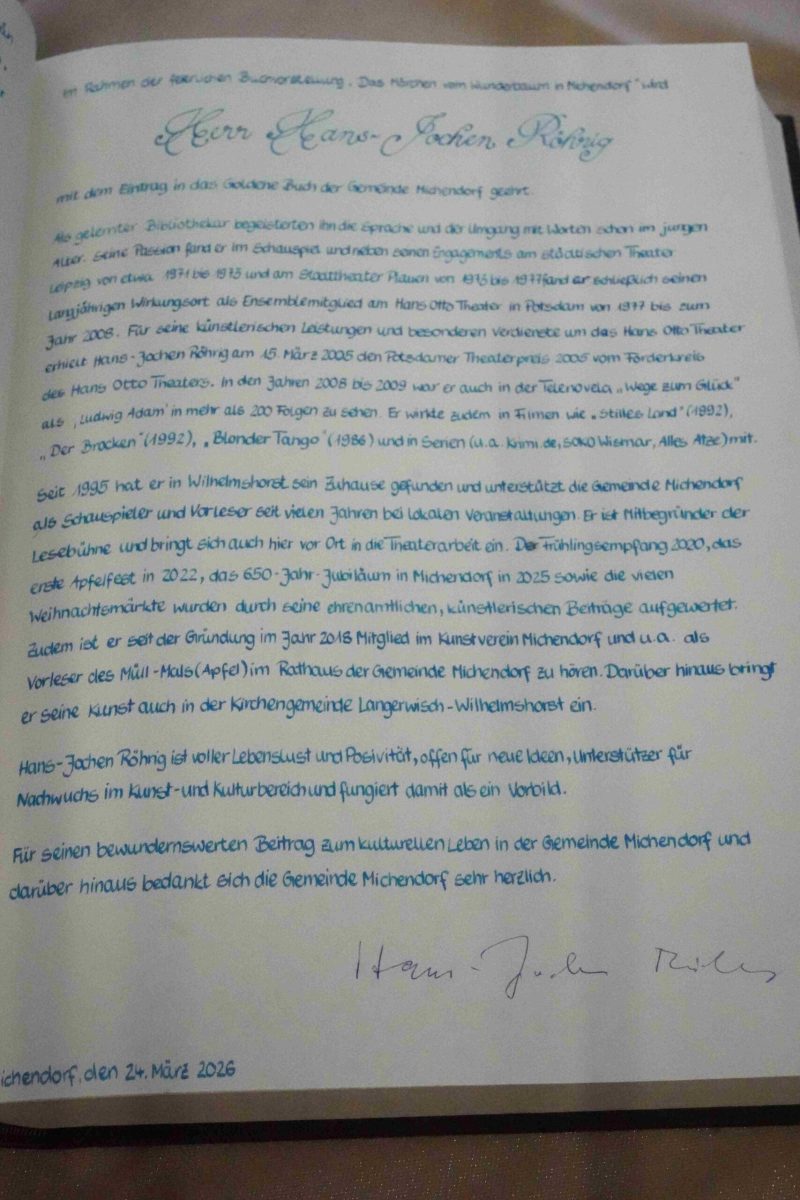 Im Rahmen der feierlichen Buchvorstellung „Das Märchen vom Wunderbaum in Michendorf" wird
Herr Hans-Jochen Röhrig
mit dem Eintrag in das Goldene Buch der Gemeinde Michendorf geehrt.
Als gelernter Bibliothekar begeisterten ihn die Sprache und der Umgang mit Worten schon im jungen
Alter. Seine Passion fand er im Schauspiel und neben seinen Engagements am städtischen Theater
Leipzig von etwa 1971 bis 1975 und am Staattheater Plauen von 1975 bis 1977 fand er schließlich seinen
langjährigen Wirkungsort als Ensemblemitglied am Hans Otto Theater in Potsdam von 1977 bis zum
Jahr 2008. Für seine künstlerischen Leistungen und besonderen Verdienste um das Hans Otto Theater
erhielt Hans-Jochen Röhrig am 15. März 2005 den Potsdamer Theaterpreis 2005 vom Förderkreis
des Hans Otto Theaters. In den Jahren 2008 bis 2009 war er auch in der Telenovela „Wege zum Glück"
als ‚Ludwig Adam' in mehr als 200 Folgen zu sehen. Er wirkte zudem in Filmen wie „Stilles Land" (1992),
„Der Brocken" (1992), „Blonder Tango" (1986) und in Serien (u.a. Krimi.de, SOKO Wismar, Alles Atze) mit.
Seit 1995 hat er in Wilhelmshorst sein Zuhause gefunden und unterstützt die Gemeinde Michendorf
als Schauspieler und Vorleser seit vielen Jahren bei lokalen Veranstaltungen. Er ist Mitbegründer der
Lesebühne und bringt sich auch hier vor Ort in die Theaterarbeit ein. Der Frühlingsempfang 2020, das
erste Apfelfest in 2022, das 650-Jahr-Jubiläum in Michendorf in 2025 sowie die vielen
Weihnachtsmärkte wurden durch seine ehrenamtlichen, künstlerischen Beiträge aufgewertet.
Zudem ist er seit der Gründung im Jahr 2018 Mitglied im Kunstverein Michendorf und u.a. als
Vorleser des Müll-Mals (Apfel) im Rathaus der Gemeinde Michendorf zu hören. Darüber hinaus bringt
er seine Kunst auch in der Kirchengemeinde Langerwisch-Wilhelmshorst ein.
Hans-Jochen Röhrig ist voller Lebenslust und Posivität, offen für neue Ideen, Unterstützer für
Nachwuchs im Kunst- und Kulturbereich und fungiert damit als ein Vorbild.
Für seinen bewundernswerten Beitrag zum kulturellen Leben in der Gemeinde Michendorf und
darüber hinaus bedankt sich die Gemeinde Michendorf sehr herzlich.
Hans-Jochen Röhrig
ichendorf, den 24. März 2026